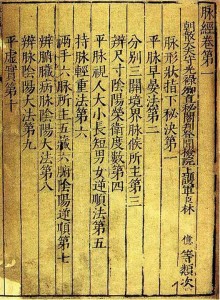 脉經卷第一
朝散大夫守光祿卿直秘閣判登聞檢院上護軍臣林 億 等類次
脉形狀指下秘決第一
平脉早晏法第二
分別三關境界脉候所主第三
辨尺寸陰陽榮衛度數第四
平脉視人大小長短男女逆順法第五
持脉輕重法第六
兩手六脉所主五藏六腑陰陽逆順第七
辨臟腑病脉陰陽大法第八
辨脉陰陽大法第九
平虛實第十